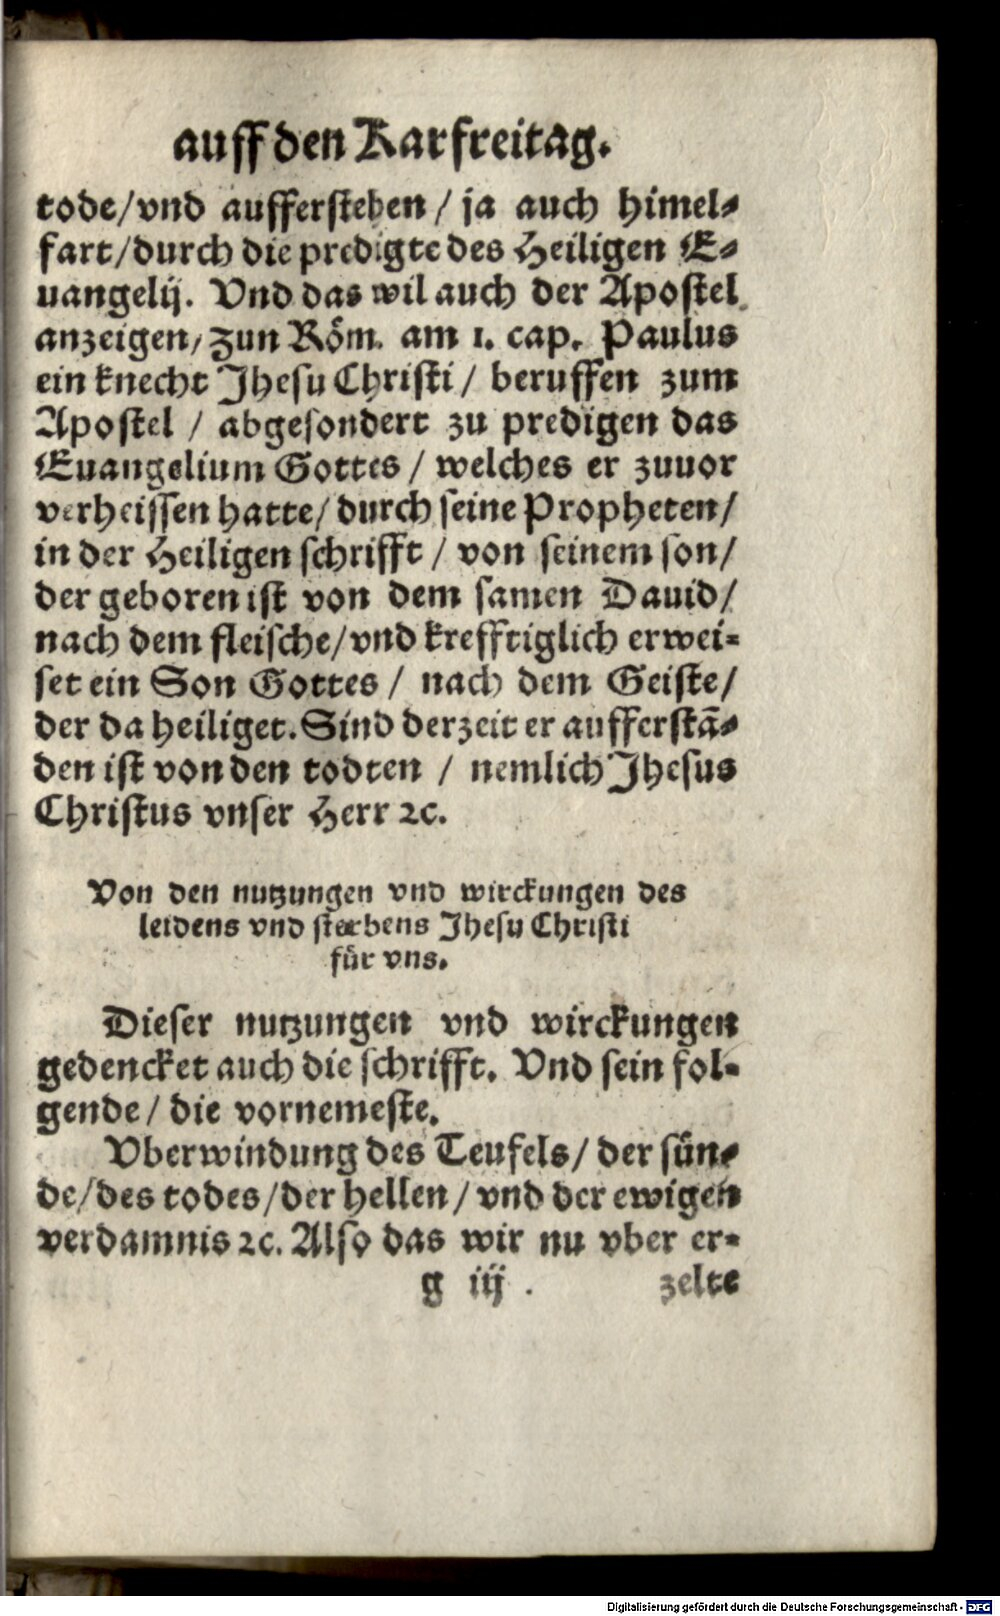 auff den Karfreitag.
tode/vnd aufferstehen / ja auch himel-
fart/durch die predigte des Heiligen E-
uangelij. Vnd das wil auch der Apostel
anzeigen, zun Röm. am 1. cap. Paulus
ein knecht Jhesu Christi / beruffen zum
Apostel / abgesondert zu predigen das
Euangelium Gottes / welches er zuuor
verheissen hatte/ durch seine Propheten/
in der Heiligen schrifft / von seinem son/
der geboren ist von dem samen Dauid/
nach dem fleische/vnd krefftiglich erwei-
set ein Son Gottes / nach dem Geiste/
der da heiliget. Sind derzeit er aufferstã-
den ist von den todten / nemlich Jhesus
Christus vnser Herr ꝛc.
Von den nutzungen vnd wirckungen des
leidens vnd sterbens Jhesu Christi
für vns.
Dieser nutzungen vnd wirckungen
gedencket auch die schrifft. Vnd sein fol-
gende / die vornemeste.
Vberwindung des Teufels/ der sün-
de/des todes/der hellen/ vnd der ewigen
verdamnis ꝛc. Also das wir nu vber er-
g iij . zelte
Digitalisierung gefördert durch die Deutsche Forschungsgemeinschaft - DFG